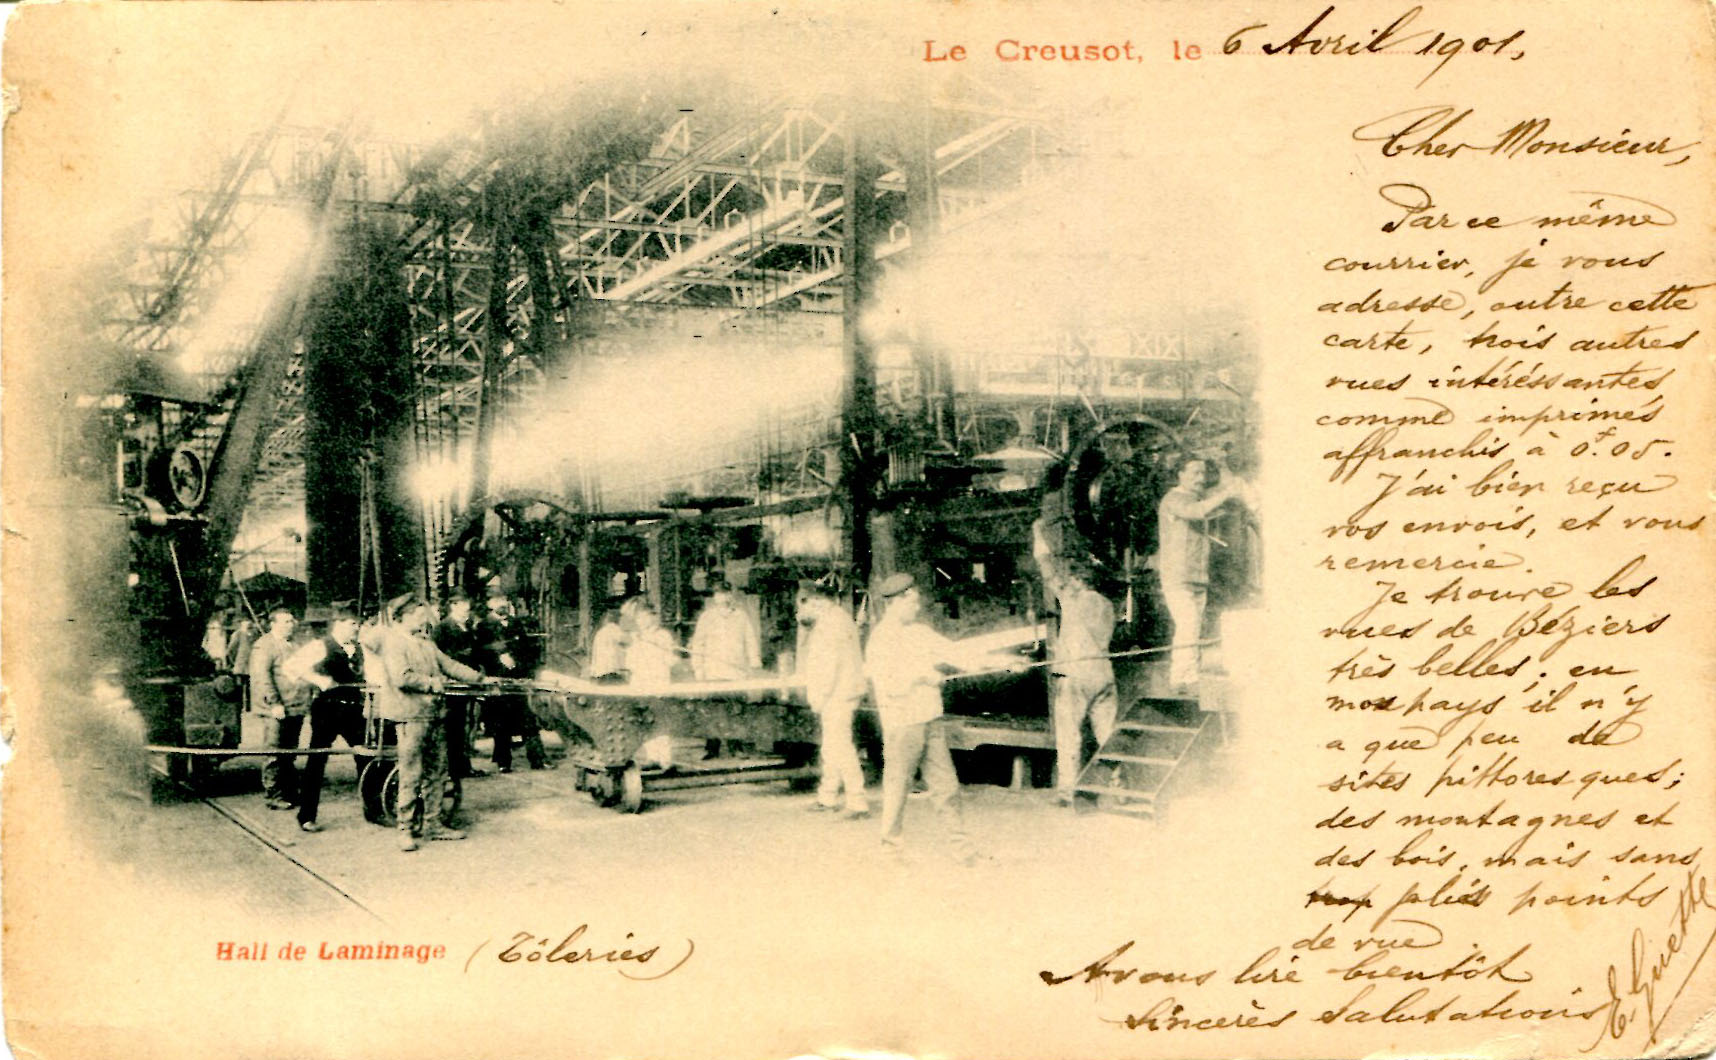 Le Creusot, le 6 Avril 1901,
Cher Monsieur,
Par ce même
courrier, je vous
adresse, outre cette
carte, trois autres
vues intéréssantes,
comme imprimés
affranchis à 0f.05.
J'ai bien reçu
vos envois, et vous
remercie.
Je trouve les
vues de Béziers
très belles; en
mon pays il n'y
a que peu de
sites pittoresques;
des montagnes et
des bois, mais sans
trop jolis points
de vue.
A vous lire bientôt
Sincères Salutations
E. Guette
Hall de Laminage (Tôleries)